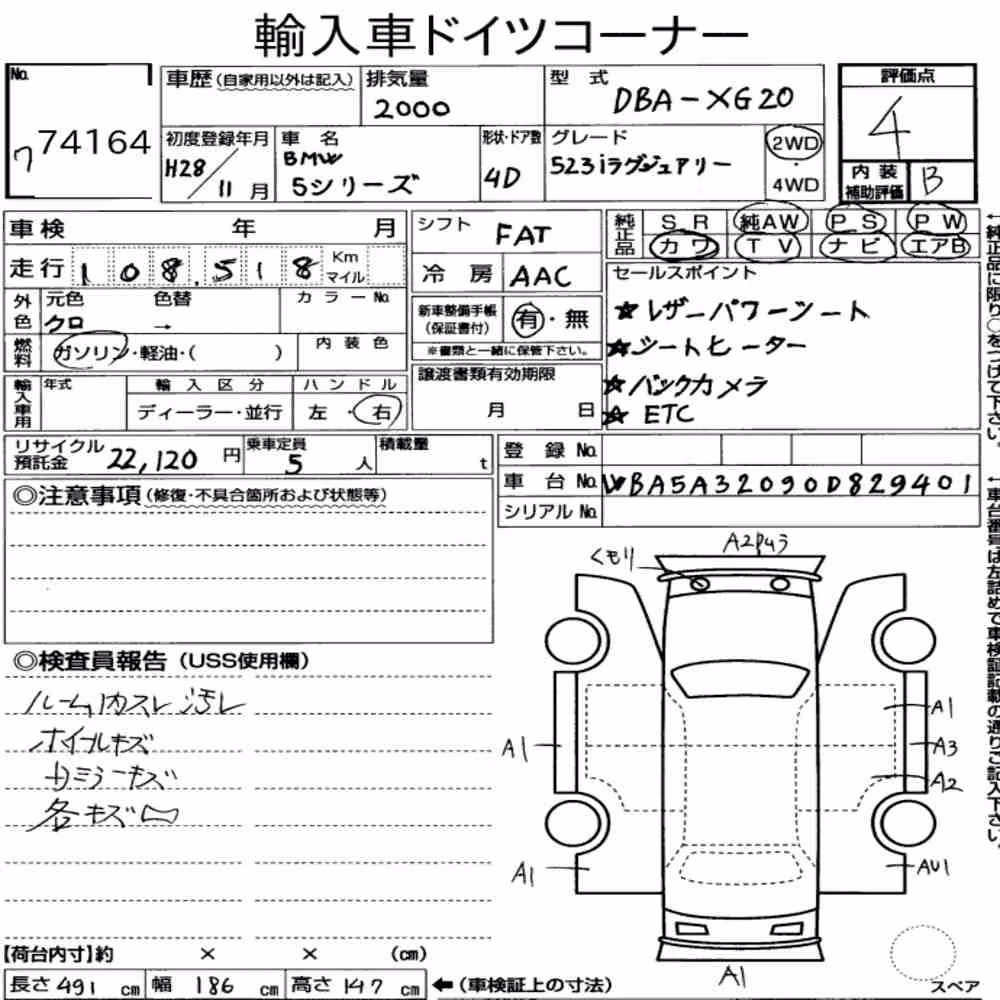 輸入車ドイツコーナー
No.
ワ 74164
車歴(自家用以外は記入)
排気量
2000
型 式
DBA-XG20
評価点
4
初度登録年月
H28/11月
車 名
BMW
5シリーズ
形状・ドア数
4D
グレード
523iラグジュアリー
2WD
・
4WD
内 装
補助評価
B
車検 年 月
走行 108,518 Km
マイル
シフト FAT
冷 房 AAC
純正品
SR 純AW PS PW
カワ TV ナビ エアB
セールスポイント
☆レザーパワーシート
☆シートヒーター
☆バックカメラ
☆ETC
外色
元色 色替 カラーNo.
クロ →
燃料
ガソリン・軽油・( )
内 装 色
新車整備手帳
(保証書付)
有・無
※書類と一緒に保管下さい。
輸入車用
年式
輸 入 区 分
ディーラー・並行
ハ ン ド ル
左 ・ 右
譲渡書類有効期限
月 日
リサイクル
預託金 22,120 円
乗車定員
5 人
積載量
t
登 録 No.
車 台 No. WBA5A32090D829401
シリアル No.
◎注意事項(修復・不具合箇所および状態等)
◎検査員報告(USS使用欄)
ルーム内スレ汚レ
ホイールキズ
カミラーキズ
各キズ凹
くもり
A2Pカラ
A1
A1
A1
A3
A2
AU1
A1
【荷台内寸】約 × × (cm)
長さ 491 cm 幅 186 cm 高さ 147 cm ←(車検証上の寸法)
スペア
←純正品に限り○をつけて下さい。
←車台番号は左詰めで車検証記載の通りご記入下さい。